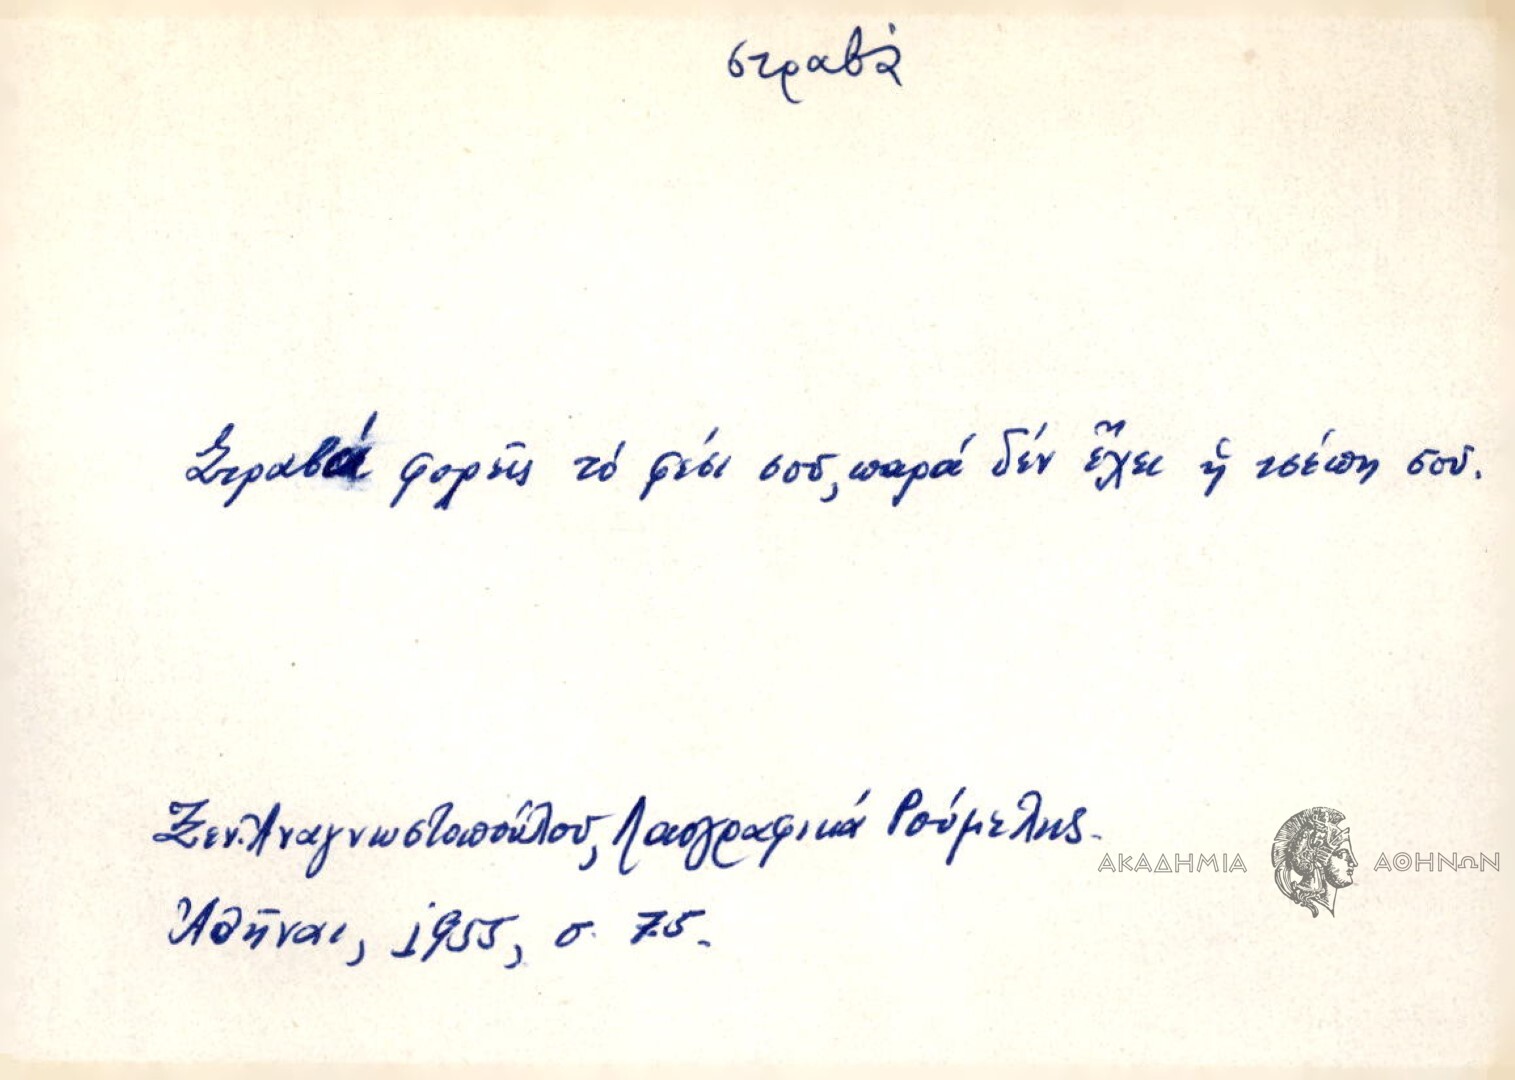 στραβὰ
Στραβά φορεῖς τό φέσι σου, παρά δέν ἔχει ἡ τσέπη σου.
Ξεν. Ἀναγνωστοπούλου, Λαογραφικά Ρούμελης.
ΑΚΑΔΗΜΙΑ ΑΘΗΝΩΝ
Ἀθῆναι, 1955, σ. 75.